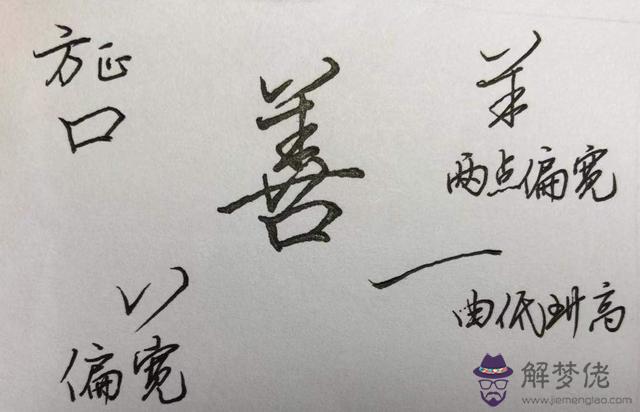 方正
口
善
羊
两点偏宽
一
由低到高
丷
偏宽
解梦佬
www.jiemenglao.com